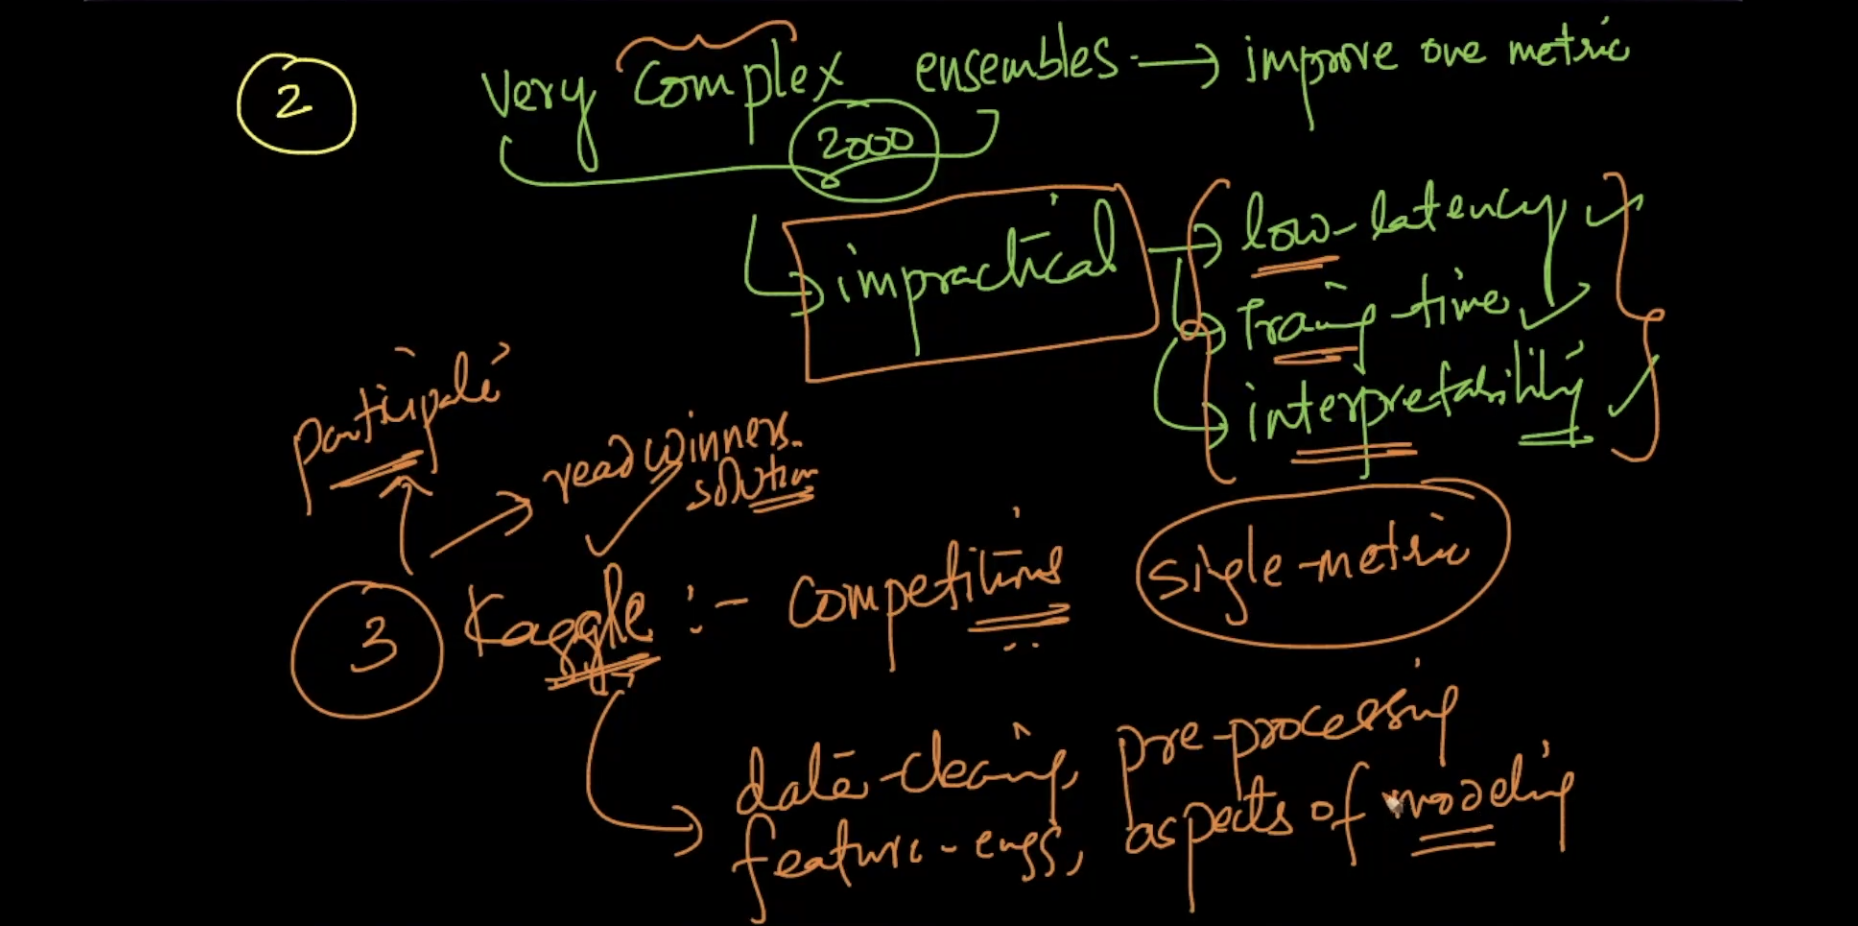 2 very complex ensembles → improve one metric
2000
impractical → low-latency
Traing-time
interpretability
participate
read winners
solution
3 Kaggle :- competitions single-metric
data-cleaning, pre-processing
feature-engg, aspects of modeling